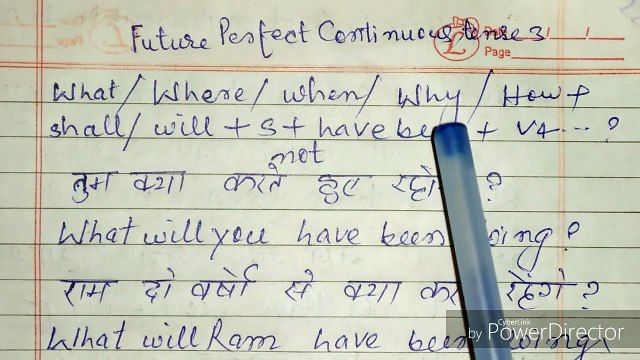 Future Perfect Continuous tense 3
Page
What / Where / when / Why / How +
shall / will + S + have be + V4 ... ?
not
तुम क्या करते हुए रहो ?
What will you have been oing ?
राम दो वर्षो से क्या कर रहेंगे ?
What will Ram have been
CyberLink
by PowerDirector